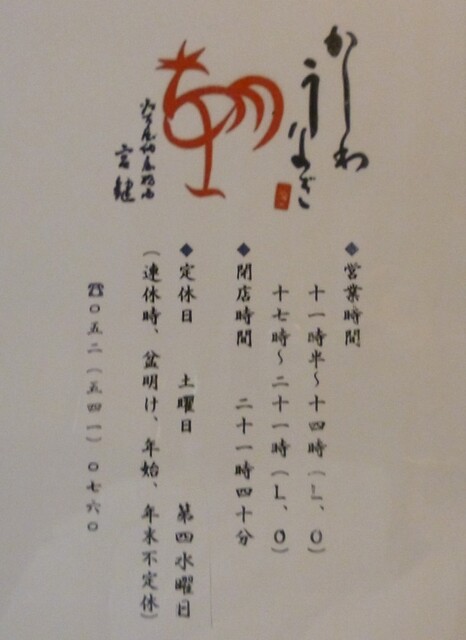 かしわ
うなぎ
宮鍵
◆営業時間
十一時半～十四時（L、O）
十七時～二十一時（L、O）
◆閉店時間　二十一時四十分
◆定休日　土曜日　第四水曜日
（連休時、盆明け、年始、年末不定休）
☎〇五二（五四一）〇七六〇